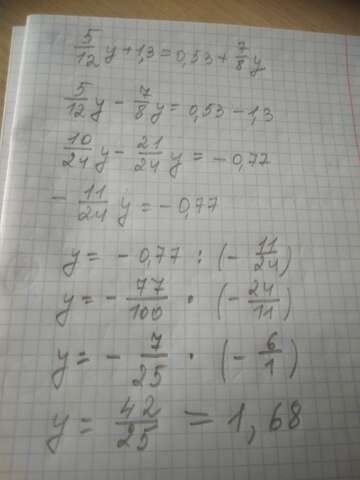 5/12 y + 1,3 = 0,53 + 7/8 y
5/12 y - 7/8 y = 0,53 - 1,3
10/24 y - 21/24 y = - 0,77
- 11/24 y = - 0,77
y = - 0,77 : (- 11/24)
y = - 77/100 · (- 24/11)
y = - 7/25 · (- 6/1)
y = 42/25 = 1,68